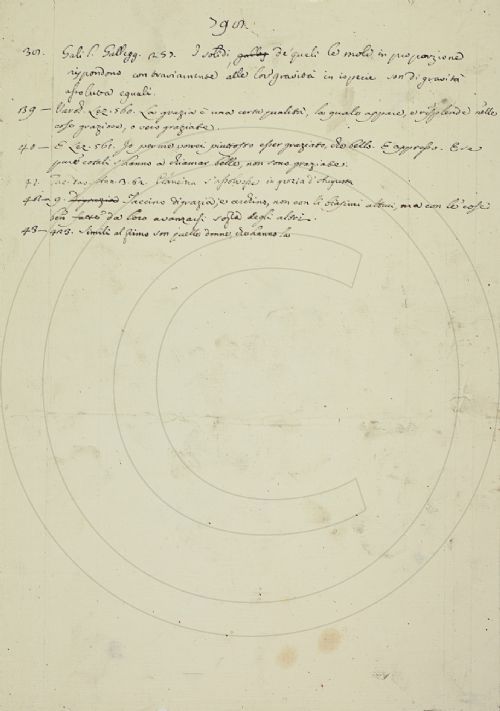 790.
Gali. l. Gallegg. 257. I solidi de' queli le moli in proporzione
rispondono contrariamente alle lor gravità in ispecie son di gravità
assoluta eguali.
139 — Varch. Lez. 560. La grazia è una certa qualità, la quale appare, e risplende nelle
cose graziose, o vero graziate.
40 — E Lez. 561. Io per me vorrei piuttosto esser graziato, che bello. E appresso. E se
pure cotali s'hanno a chiamar belle, non sono graziate.
41. Tac. Dav. Ann. 3. 62. in grazia d'Augusta
9. Faccino di grazia, e credino, non con li altrui, ma con le cose
ben fatte da loro avanzarsi sopra degli altri.
43 — 423. Simili al primo son quelle donne, che hanno la